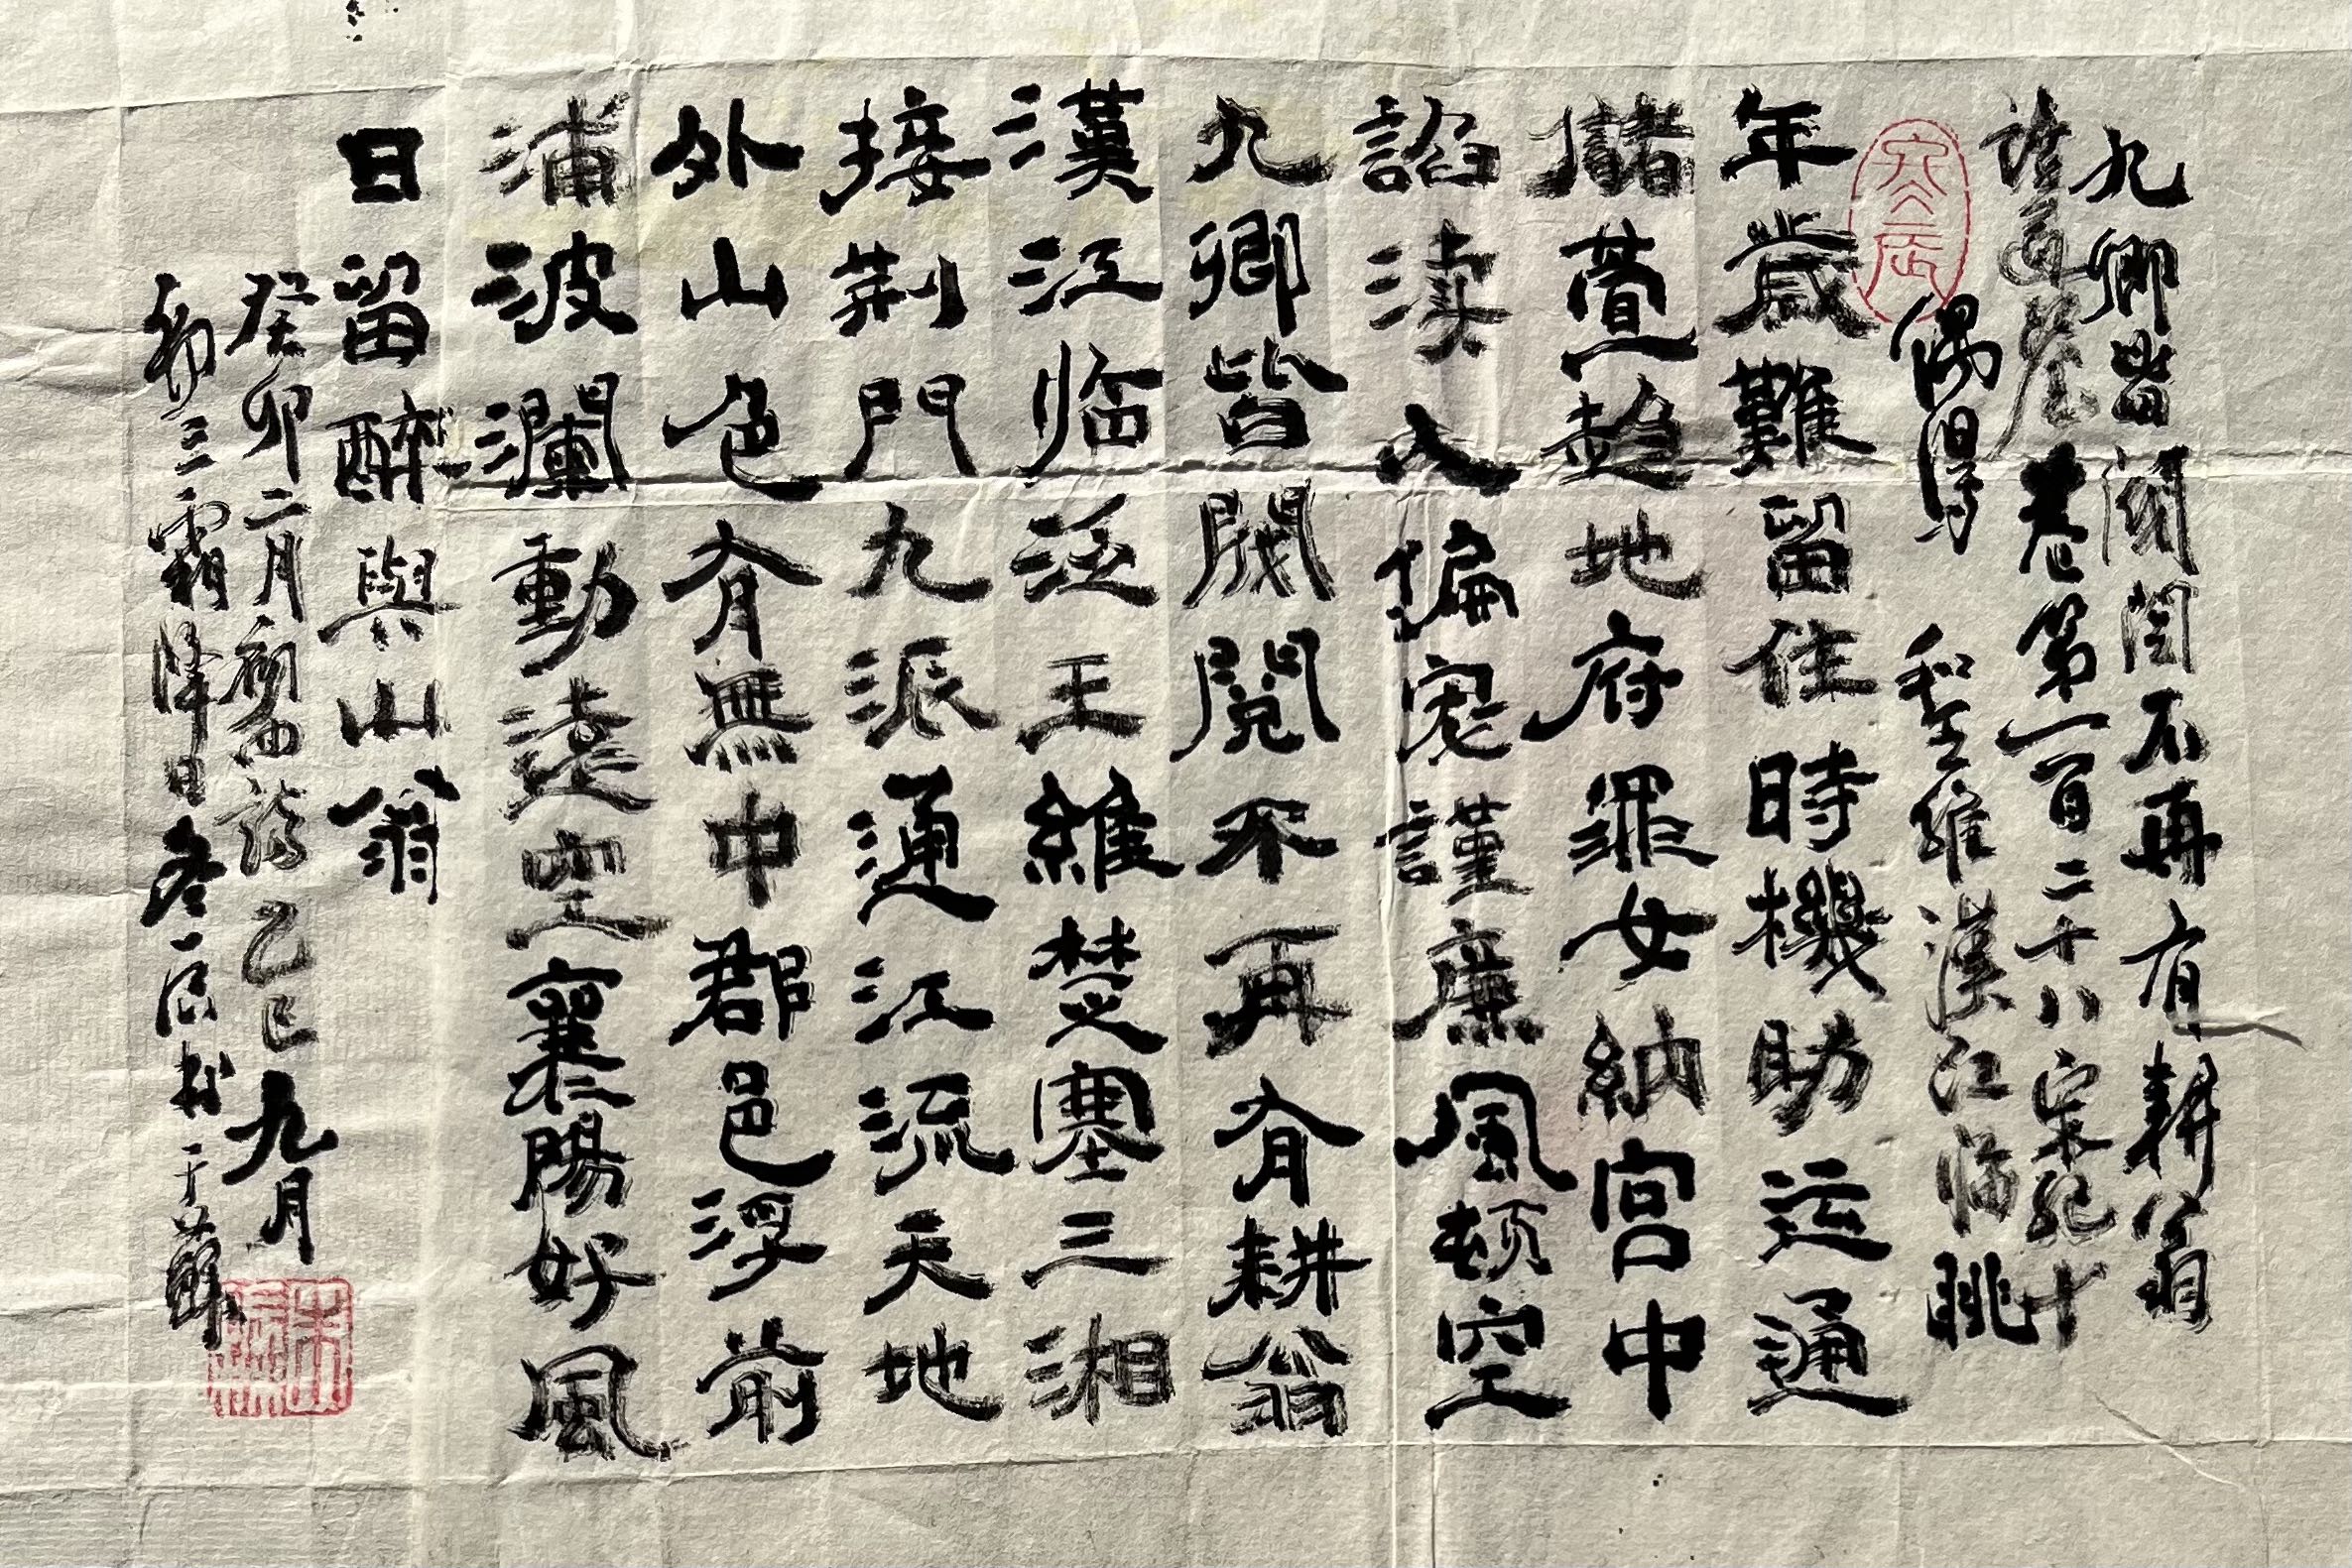 九卿皆閥閱不再有耕翁
讀通鑒卷第一百二十八宋紀十
偶得 和王維漢江臨眺
年歲難留住時機助运通
儲萱趋地府罪女納宮中
諂渎入偏寵謹廉風頓空
九卿皆閥閱不再有耕翁
漢江临泛王維楚塞三湘
接荆門九派通江流天地
外山色有無中郡邑浮前
浦波瀾動遠空襄陽好風
日留醉與山翁
癸卯二月初四詩乙巳九月
初三霜降日冬一居於于薜